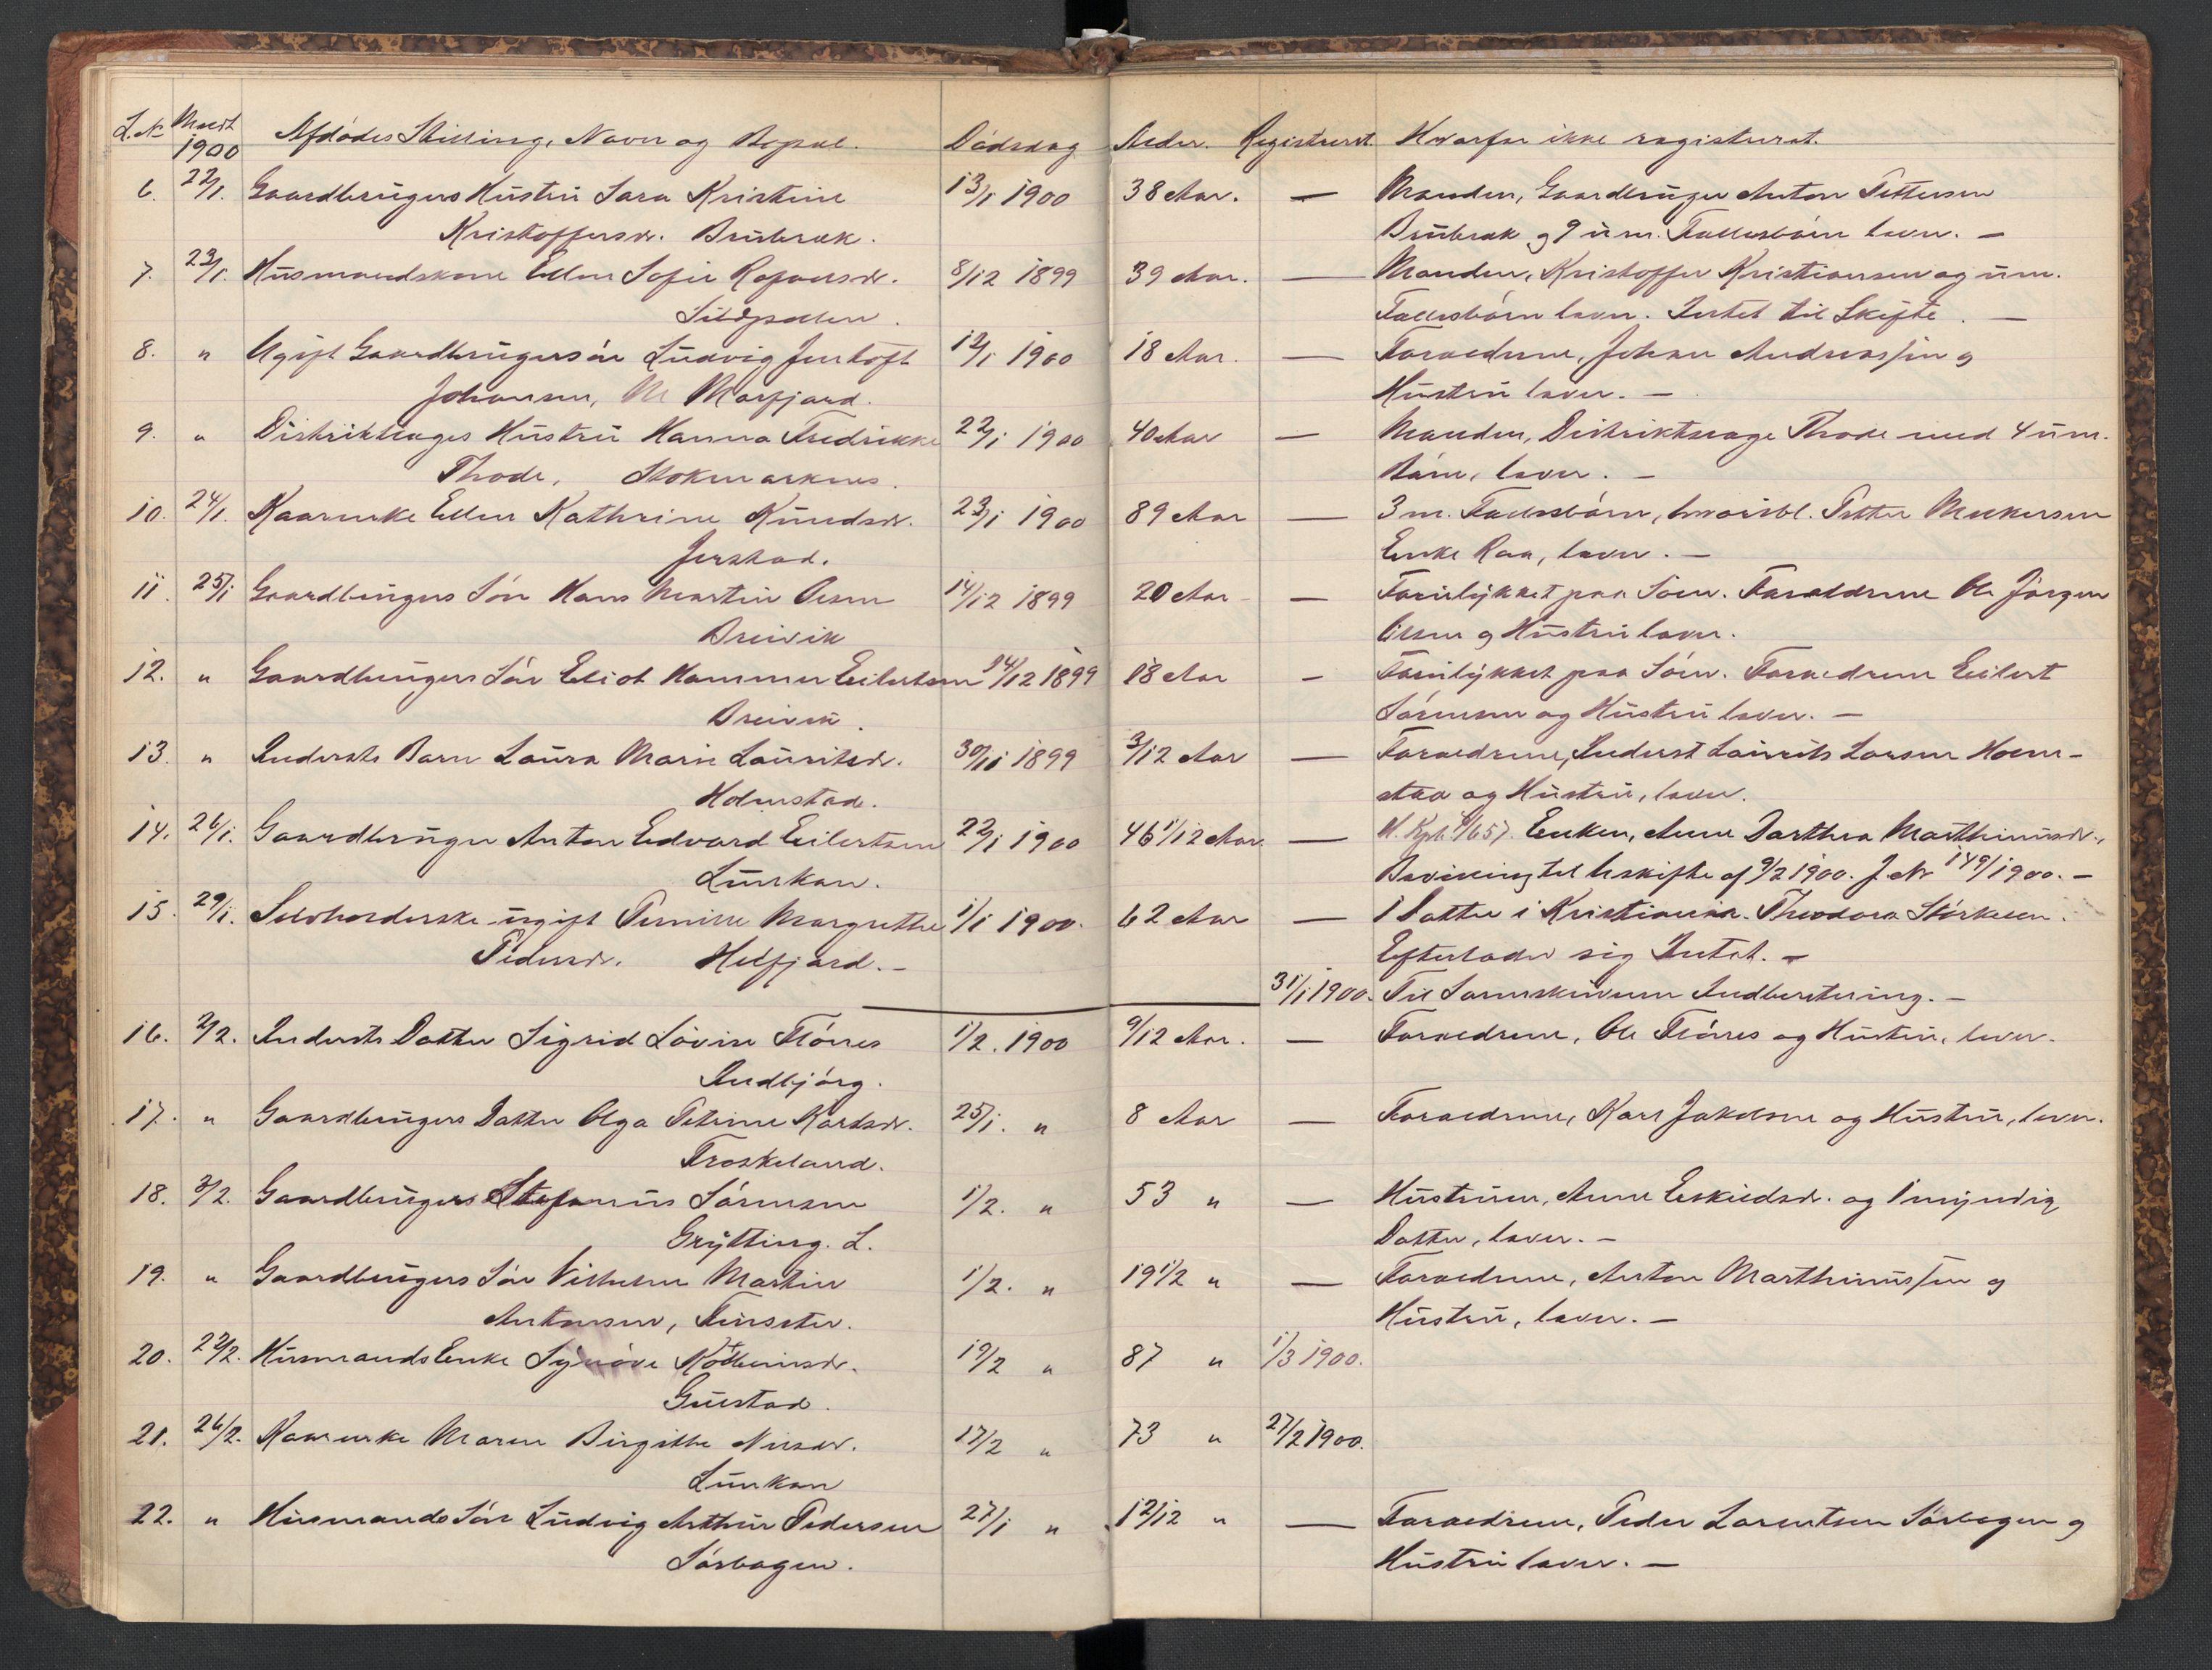 L.No Meldt 1900 Afdødes Stilling, Navn og Bopæl. Dødsdag Alder. Registreret. Hvorfor ikke registreret.
6. 22/1. Gaardbrugers Hustru Sara Kristine 13/1 1900 38 Aar. — Manden, Gaardbruger Anton Pettersen
Kristoffersdr. Brubræk. Brubræk og 9 um. Fællesbørn lever. —
7. 23/1. Husmandskone Ellen Sofie Rafaelsdr. 8/12 1899 39 Aar. — Manden, Kristoffer Kristiansen og um.
Sildpollen. Fællesbørn lever. Intet til Skifte. —
8. " Ugift Gaardbrugersøn Ludvig Jentoft 12/1 1900 18 Aar. — Forældrene, Johan Andreassen og
Johansen, Morfjord. Hustru lever. —
9. " Distriktslæges Hustru Hanna Fredrikke 22/1 1900 40 Aar — Manden, Distriktslæge Thode med 4 um.
Thode, Stokmarknes. Børn, lever. —
10. 24/1. Kaarenke Ellen Kathrine Knudsdr. 23/1 1900 89 Aar — 3 m. Fællesbørn, hvoribl. Petter
Jerstad. Enke Raa, lever. —
11. 25/1 Gaardbrugers Søn Hans Martin Olsen 14/12 1899 20 Aar — Forulykket paa Søen. Forældrene Ole Jørgen
Breivik Olsen og Hustru lever.
12. " Gaardbrugers Søn Eliot Hammer Eilertsen 14/12 1899 18 Aar — Forulykket paa Søen. Forældrene Eilert
Breivik. Sørensen og Hustru lever. —
13. " Indersts Barn Laura Marie Lauritsdr. 30/11 1899 3/12 Aar — Forældrene, Inderst Laurits Larsen Holm-
Holmstad. stad og Hustru, lever.
14. 26/1. Gaardbruger Anton Edvard Eilertsen 22/1 1900 46 1/12 Aar — Enken, Anne Darthea Marthinusdr.,
Lunkan. Bevilling til Uskifte af 9/2 1900. J.No 149/1900. —
15. 29/1. Selvhorderske ugift Pernille Margrethe 1/1 1900. 62 Aar — 1 Datter i Kristiania. Theodora Størkesen.
Pedersdr. Melfjord. — Efterlader sig Intet. —
31/1 1900. Til Sorenskriveren Indberetning. —
16. 2/2. Indersts Datter Sigrid Lovise Flønes 1/2. 1900 9/12 Aar. — Forældrene, Ole Flønes og Hustru, lever.
Indbjørg.
17. " Gaardbrugers Datter Olga Petrine Karlsdr. 25/1. " 8 Aar — Forældrene, Karl Jakobsen og Hustru, lever.
Froskeland.
18. 3/2. Gaardbrugers Stefanus Sørensen 1/2. " 53 " — Hustruen, Anne Eskildsdr. og 1 umyndig
Grytting. L. Datter, lever. —
19. " Gaardbrugers Søn Vilhelm Martin 1/2. " 19 1/2 " — Forældrene, Anton Marthinussen og
Antonsen, Finsæter. Hustru, lever. —
20. 22/2. Husmands Enke Synøve 19/2 " 87 " 1/3 1900.
Guvstad.
21. 26/2. Kaarenke Maren Birgitte Nilsdr. 17/2 " 73 " 27/2 1900.
Lunkan
22. " Husmands Søn Ludvig Arthur Pedersen 27/1 " 12/12 " — Forældrene, Peder Lorentsen Sørbogen og
Sørbogen. Hustru lever. —